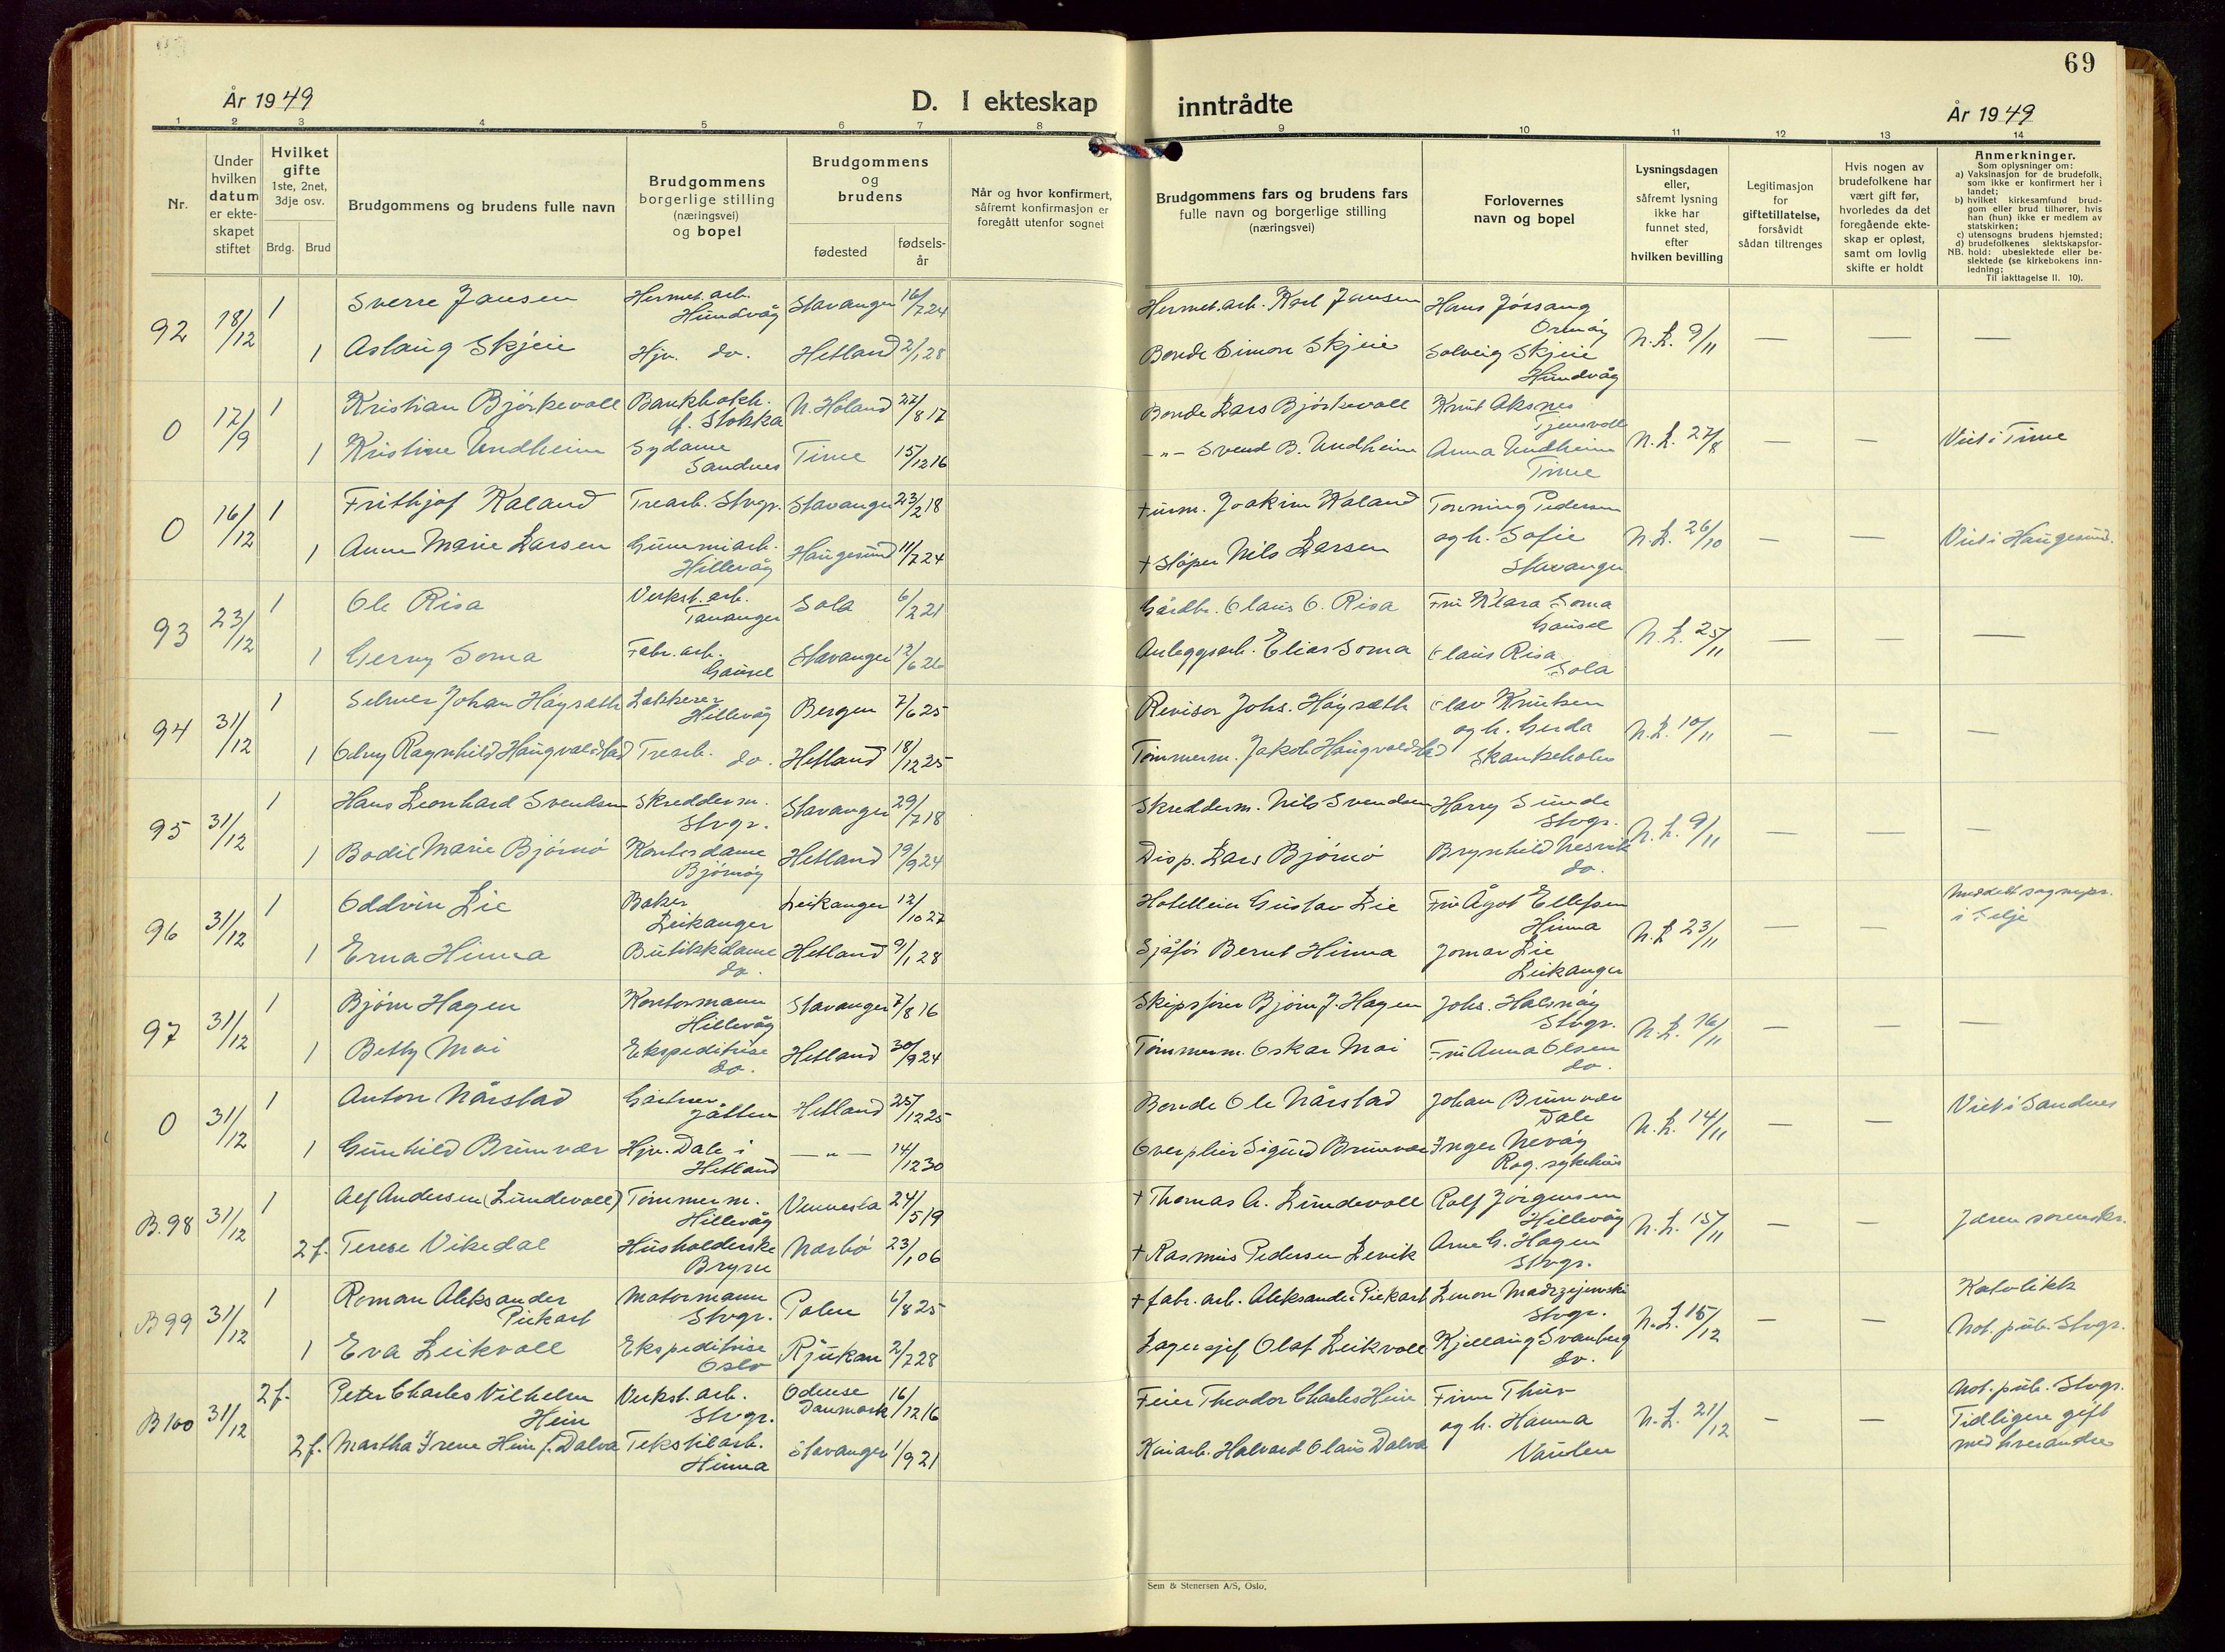 69
År 1949
D. I ekteskap inntrådte
År 1949
1 2 3 4 5 6 7 8 9 10 11 12 13 14
Nr.
Under hvilken datum er ekteskapet stiftet
Hvilket gifte 1ste, 2net, 3dje osv.
Brdg. Brud
Brudgommens og brudens fulle navn
Brudgommens borgerlige stilling (næringsvei) og bopel
Brudgommens og brudens
fødested fødsels-år
Når og hvor konfirmert, såfremt konfirmasjon er foregått utenfor sognet
Brudgommens fars og brudens fars fulle navn og borgerlige stilling (næringsvei)
Forlovernes navn og bopel
Lysningsdagen eller, såfremt lysning ikke har funnet sted, efter hvilken bevilling
Legitimasjon for giftetillatelse, forsåvidt sådan tiltrenges
Hvis nogen av brudefolkene har vært gift før, hvorledes da det foregående ekteskap er opløst, samt om lovlig skifte er holdt
Anmerkninger.
Som oplysninger om:
a) Vaksinasjon for de brudefolk, som ikke er konfirmert her i landet;
b) hvilket kirkesamfund brudgom eller brud tilhører, hvis han (hun) ikke er medlem av statskirken;
c) utensogns brudens hjemsted;
d) brudefolkenes slektskapsforhold: ubeslektede eller beslektede (se kirkebokens innledning;
NB. Til iakttagelse II. 10).
92 18/12 1 Sverre Jansen Hermet.arb. Hundvåg Stavanger 16/7 24 Hermet.arb. Karl Jansen Hans Jøssang Ormøy N.L. 9/11 — — —
1 Aslaug Skjeie Hjv. do. Hetland 2/1 28 Bonde Simon Skjeie Solveig Skjeie Hundvåg
0 17/9 1 Kristian Bjørkevoll Bankbokh. f. Stokka N. Høland 22/8 17 Bonde Lars Bjørkevoll Knut Aksnes Tjensvoll N.L. 27/8 — — Viet i Time
1 Kristine Undheim Sydame Sandnes Time 15/12 16 —"— Svend B. Undheim Anna Undheim Time
0 16/12 1 Frithjof Kaland Trearb. Stvgr. Stavanger 23/2 18 + Joakim Kaland Tonning Pedersen N.L. 26/10 — — Viet i Haugesund.
1 Anne Marie Larsen Gummiarb. Hillevåg Haugesund 11/7 24 + Støper Nils Larsen og h. Sofie Stavanger
93 23/12 1 Ole Risa Verkst.arb. Tananger Sola 6/2 21 Gårdbr. Olaus O. Risa Fru Klara Soma Gausel N.L. 25/11 — — —
1 Gerny Soma Fabr.arb. Gausel Stavanger 12/6 26 Anleggsarb. Elias Soma Olaus Risa Sola
94 31/12 1 Selmer Johan Høysæth Lakkerer Hillevåg Bergen 7/6 25 Revisor Johs. Høysæth Olav Knutsen N.L. 10/11 — — —
1 Odny Ragnhild Haugvaldstad Trearb. do. Hetland 18/12 25 Tømmerm. Jakob Haugvaldstad og h. Gerda Skankeholm
95 31/12 1 Hans Leonhard Svendsen Skredderm. Stvgr. Stavanger 29/7 18 Skredderm. Nils Svendsen Harry Sunde Stvgr. N.L. 9/11 — — —
1 Bodil Marie Bjørnø Kontordame Bjørnøy Hetland 19/9 24 Disp. Lars Bjørnø Brynhild Nesvik do.
96 31/12 1 Oddvin Lie Baker Leikanger Leikanger 12/10 27 Hotelleier Gustav Lie Fru Ågot Ellefsen Hinna N.L. 23/11 — — Meddelt sognepr. i Selje
1 Erna Hinna Butikkdame do. Hetland 9/1 28 Sjåfør Bernt Hinna Jomar Lie Leikanger
97 31/12 1 Bjørn Hagen Kontormann Hillevåg Stavanger 7/8 16 Skipsfører Bjørn J. Hagen Johs. Halsnøy Stvgr. N.L. 16/11 — — —
1 Betty Moi Ekspeditrise do. Hetland 30/9 24 Tømmerm. Oskar Moi Fru Anna Olsen do.
0 31/12 1 Anton Nårstad Gartner Jåtten Hetland 25/12 25 Bonde Ole Nårstad Johan Brunvær Dale N.L. 14/11 — — Viet i Sandnes
1 Gunhild Brunvær Hjv. Dale i Hetland —"— 14/12 30 Overpleier Sigurd Brunvær Inger Nevøy Rog. sykehus
B.98 31/12 1 Alf Andersen (Lundevoll) Tømmerm. Hillevåg Vennesla 24/5 19 + Thomas A. Lundevoll Rolf Jørgensen Hillevåg N.L. 15/11 — — Jæren sorenskr.
2 f. Terese Vikedal Husholderske Bryne Nærbø 23/1 06 + Rasmus Pedersen Levik Arne G. Hagen Stvgr.
B99 31/12 1 Roman Aleksander Piekart Motormann Stvgr. Polen 6/8 25 + fabr.arb. Aleksander Piekart Zenon Stvgr. N.L. 15/12 — — Katolikk
1 Eva Leikvoll Ekspeditrise Oslo Rjukan 2/7 28 Lagersjef Olaf Leikvoll Kjellaug Svanberg do. Not. pub. Stvgr.
B100 31/12 2 f. Peter Charles Vilhelm Hein Verkst.arb. Stvgr. Odense Danmark 16/12 16 Feier Theodor Charles Hein Finn Thu N.L. 21/12 — — Not. pub. Stvgr.
2 f. Martha Irene Hein f. Dalva Tekstilarb. Hinna Stavanger 1/9 21 Kaiarb. Halvard Olaus Dalva og h. Hanna Vaulen Tidligere gift med hverandre
Sem & Stenersen A/S, Oslo.